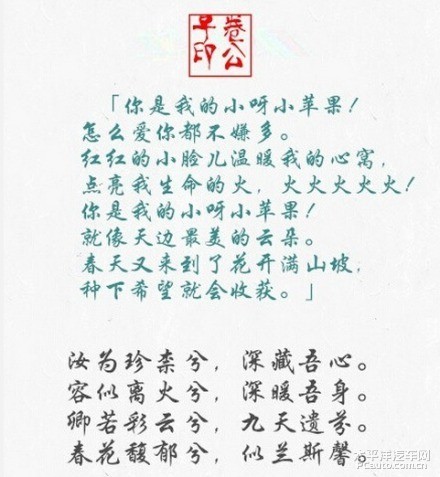 卷公
早印
「你是我的小呀小苹果！
怎么爱你都不嫌多。
红红的小脸儿温暖我的心窝，
点亮我生命的火，火火火火火！
你是我的小呀小苹果！
就像天边最美的云朵。
春天又来到了花开满山坡，
种下希望就会收获。」
汝为珍柰兮，深藏吾心。
容似离火兮，深暖吾身。
卿若彩云兮，九天遗芬。
春花馥郁兮，似兰斯馨。
太平洋汽车网
PCauto.com.cn